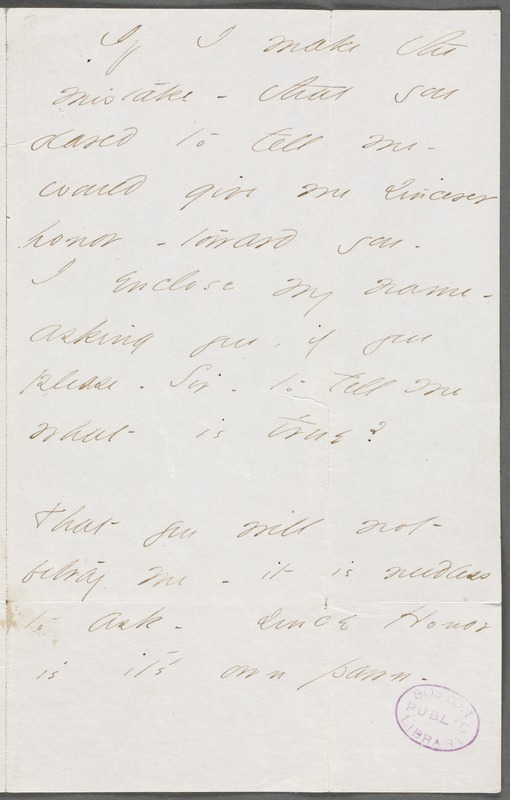 If I make the
mistake - that you
dared to tell me -
would give me sincerer
honor - toward you -
I enclose my name -
asking you, if you
please - Sir - to tell me
what is true?
That you will not
betray me - it is needless
to ask - since Honor
is it's own pawn -
BOSTON
PUBLIC
LIBRARY